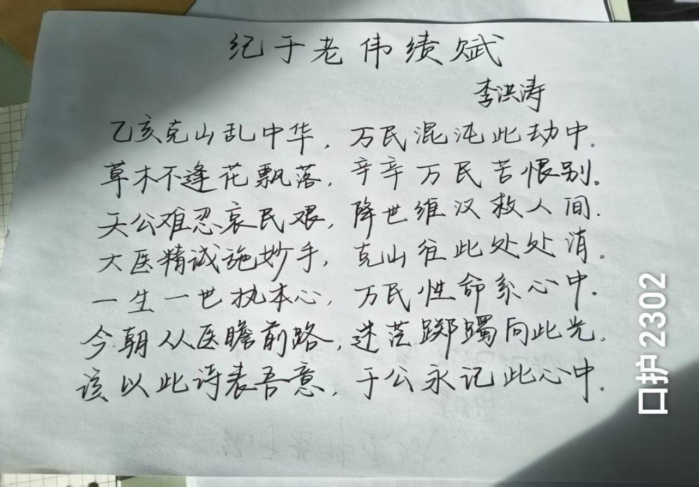 纪于老伟绩赋
李洪涛
乙亥克山乱中华，万民混沌此劫中.
草木不逢花飘落，辛辛万民苦恨别。
天公难忍哀民艰，降世维汉救人间.
大医精诚施妙手，克山往此处处消。
一生一世执本心，万民性命系心中.
今朝从医瞻前路，迷茫踯躅向此光。
该以此诗表吾意，于公永记此心中.
口护2302